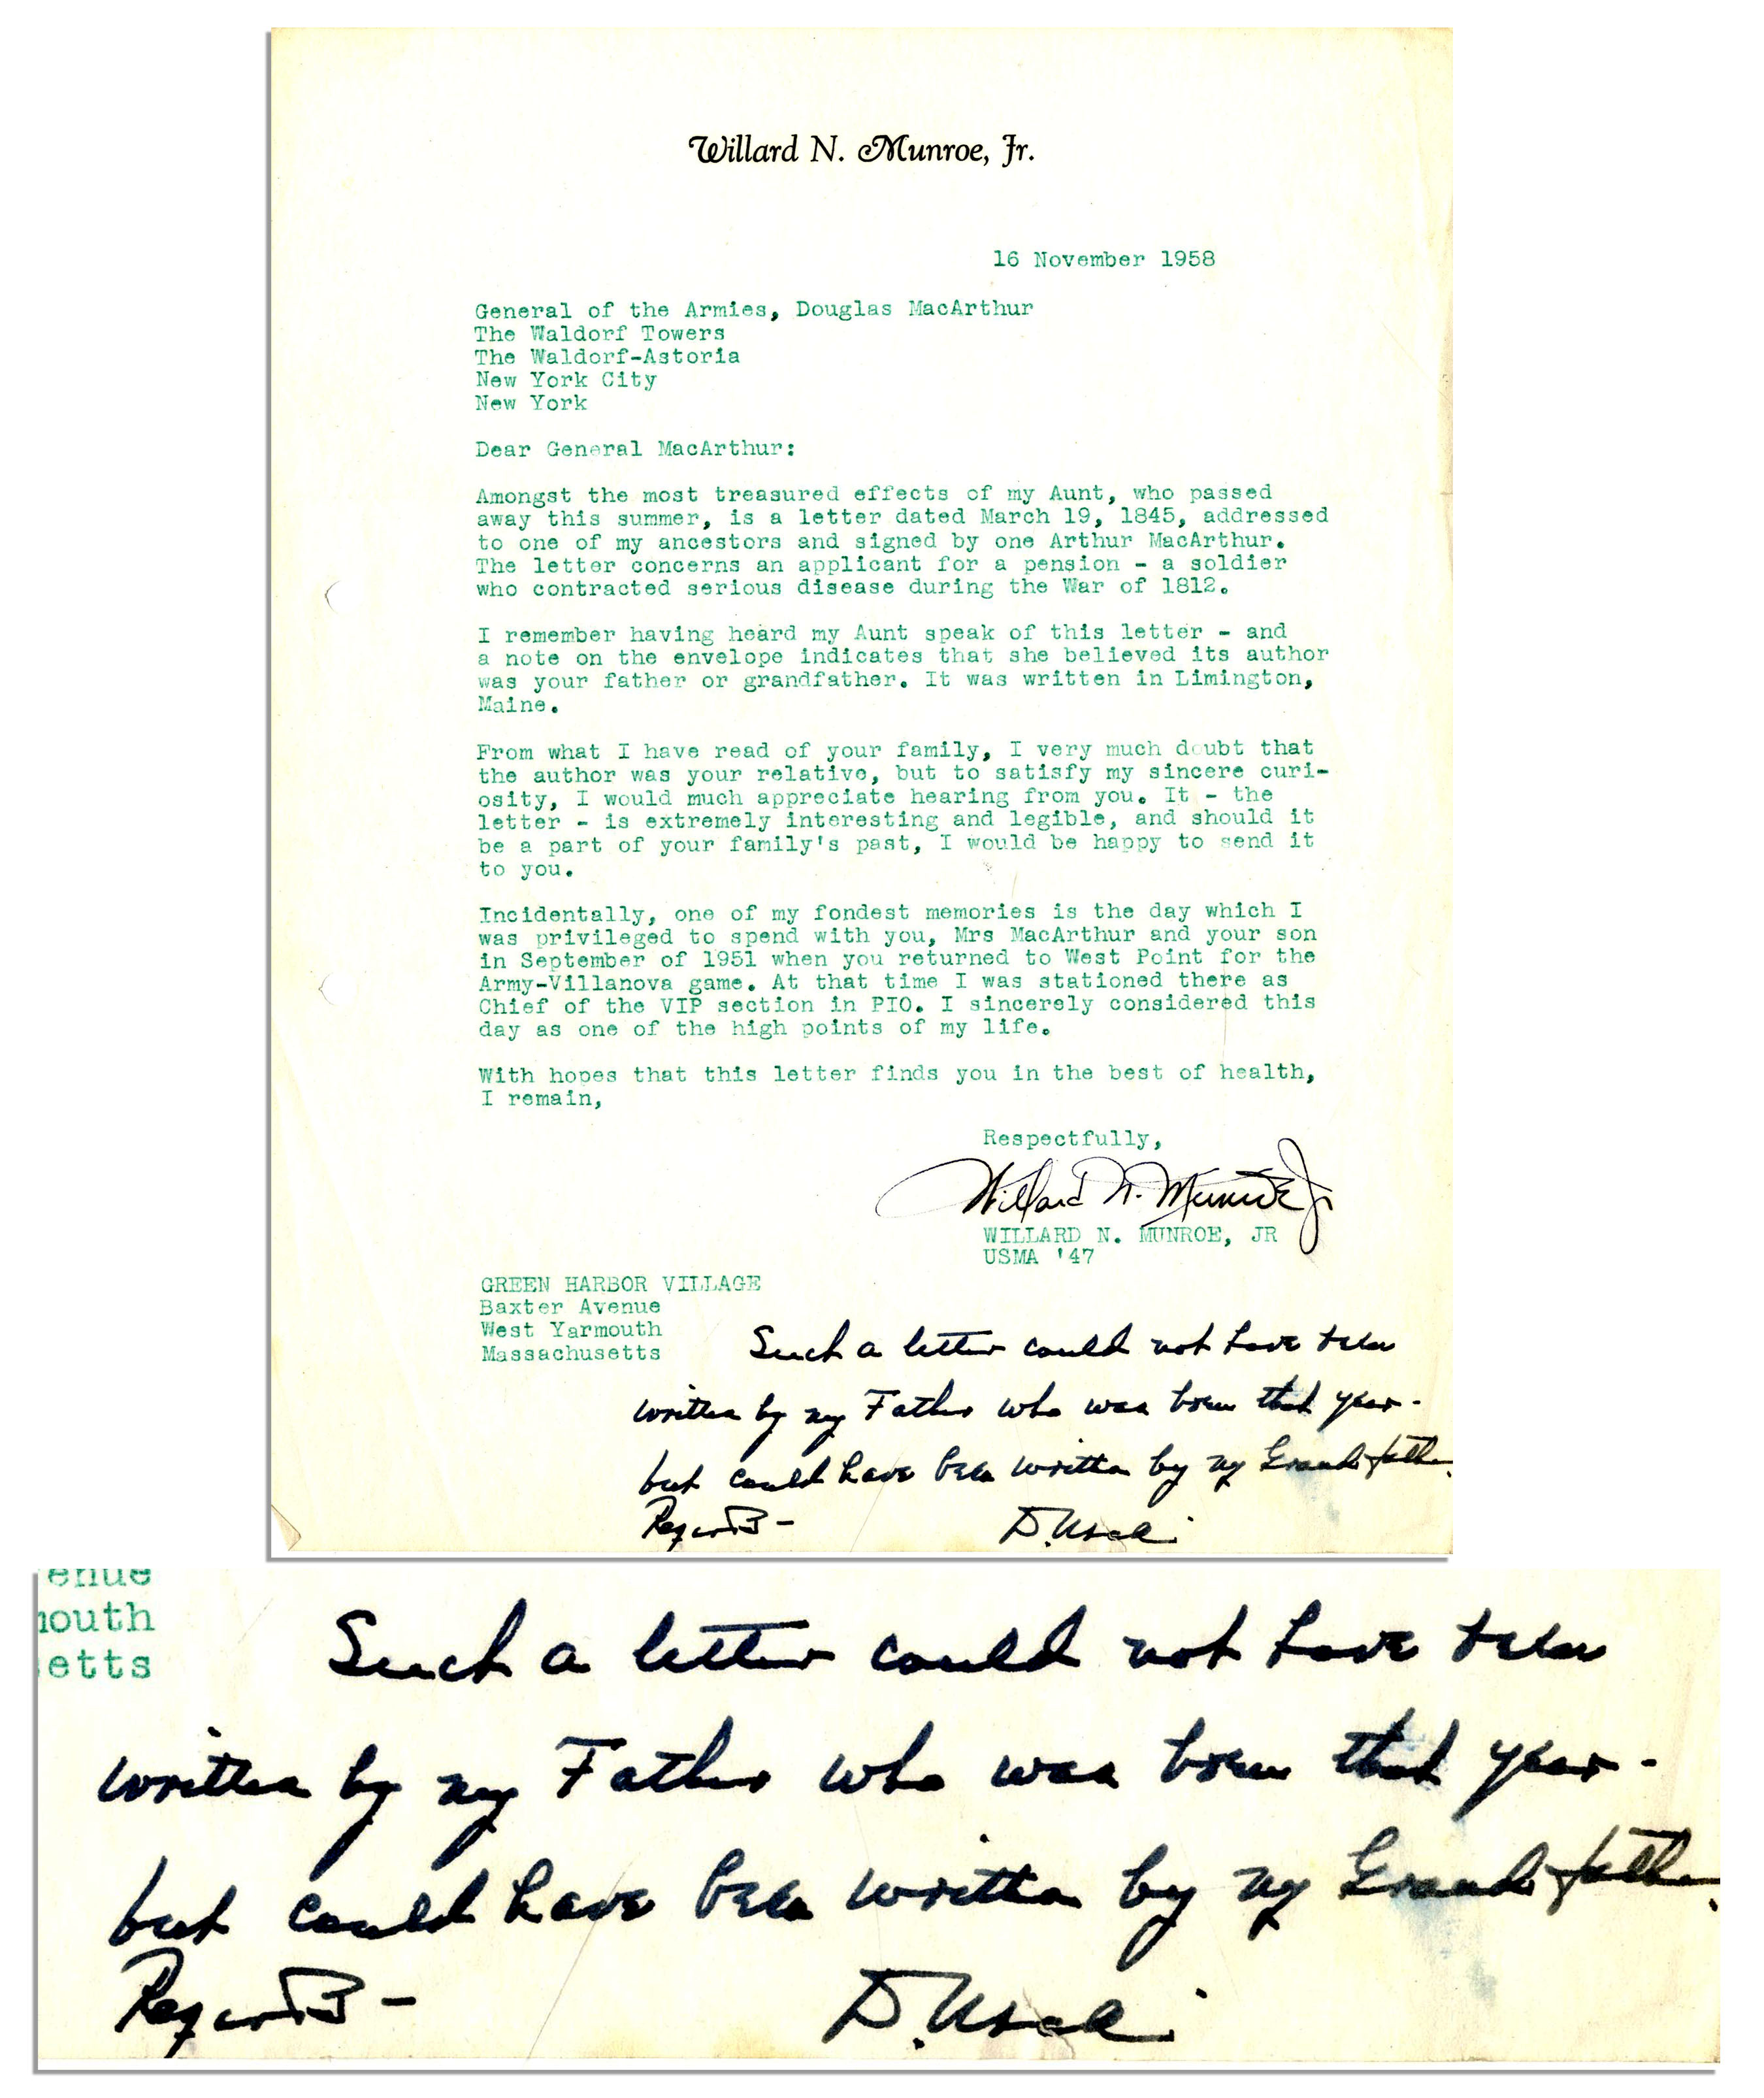 Willard N. Munroe, Jr.
16 November 1958
General of the Armies, Douglas MacArthur
The Waldorf Towers
The Waldorf-Astoria
New York City
New York
Dear General MacArthur:
Amongst the most treasured effects of my Aunt, who passed
away this summer, is a letter dated March 19, 1845, addressed
to one of my ancestors and signed by one Arthur MacArthur.
The letter concerns an applicant for a pension - a soldier
who contracted serious disease during the War of 1812.
I remember having heard my Aunt speak of this letter - and
a note on the envelope indicates that she believed its author
was your father or grandfather. It was written in Limington,
Maine.
From what I have read of your family, I very much doubt that
the author was your relative, but to satisfy my sincere curi-
osity, I would much appreciate hearing from you. It - the
letter - is extremely interesting and legible, and should it
be a part of your family's past, I would be happy to send it
to you.
Incidentally, one of my fondest memories is the day which I
was privileged to spend with you, Mrs MacArthur and your son
in September of 1951 when you returned to West Point for the
Army-Villanova game. At that time I was stationed there as
Chief of the VIP section in PIO. I sincerely considered this
day as one of the high points of my life.
With hopes that this letter finds you in the best of health,
I remain,
Respectfully,
Willard N. Munroe Jr
WILLARD N. MUNROE, JR
USMA '47
GREEN HARBOR VILLAGE
Baxter Avenue
West Yarmouth
Massachusetts
Such a letter could not have been
written by my Father who was born that year -
but could have been written by my Grandfather.
Regards -
enue
outh
etts
Such a letter could not have been
written by my Father who was born that year -
but could have been written by my Grandfather.
Regards -